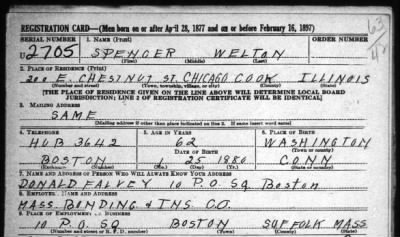 REGISTRATION CARD—(Men born on or after April 28, 1877 and on or before February 16, 1897)
SERIAL NUMBER 1. NAME (Print) ORDER NUMBER
U 2705 SPENCER WELTON
(First) (Middle) (Last)
2. PLACE OF RESIDENCE (Print)
200 E. CHESTNUT ST. CHICAGO COOK ILLINOIS
(Number and street) (Town, township, village, or city) (County) (State)
[THE PLACE OF RESIDENCE GIVEN ON THE LINE ABOVE WILL DETERMINE LOCAL BOARD
JURISDICTION; LINE 2 OF REGISTRATION CERTIFICATE WILL BE IDENTICAL]
3. MAILING ADDRESS
SAME
[Mailing address if other than place indicated on line 2. If same insert word same]
4. TELEPHONE 5. AGE IN YEARS 6. PLACE OF BIRTH
HUB 3642 62 WASHINGTON
DATE OF BIRTH (Town or county)
BOSTON 25 1880 CONN
7. NAME AND ADDRESS OF PERSON WHO WILL ALWAYS KNOW YOUR ADDRESS
DONALD FALVEY 10 P.O. SQ Boston
8. EMPLOYER'S NAME AND ADDRESS
MASS. BONDING & INS. CO.
9. PLACE OF EMPLOYMENT OR BUSINESS
10 P.O. SQ BOSTON SUFFOLK MASS
(Number and street or R. F. D. number) (Town) (County) (State)